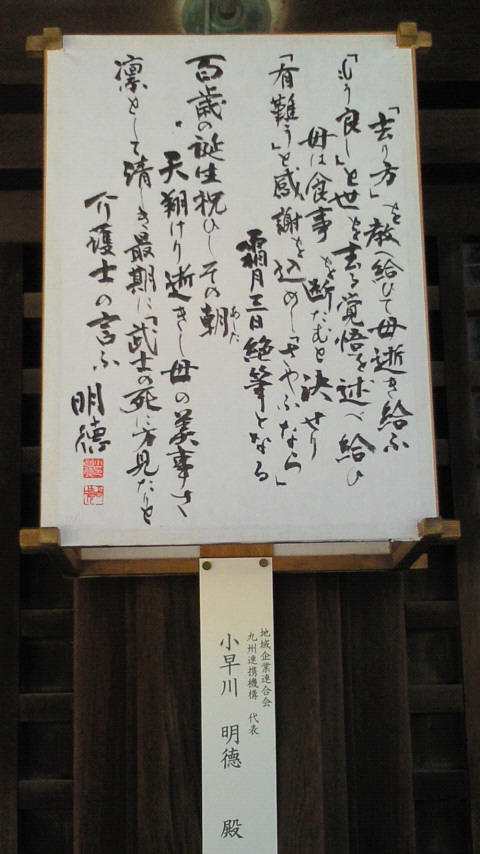 「去り方」を教へ給ひて母逝き給ふ
「もう良し」と世を去る覚悟を述べ給ひ
母は食事を断たむと決せり
「有難う」と感謝を込めし「さやふなら」
霜月三日絶筆となる
百歳の誕生祝ひしその朝
あした
天翔けり逝きし母の美事さ
凛として清しき最期に「武士の死に方見たり」と
介護士の言ふ 明德
地域企業連合会
九州連携機構 代表
小早川 明德 殿